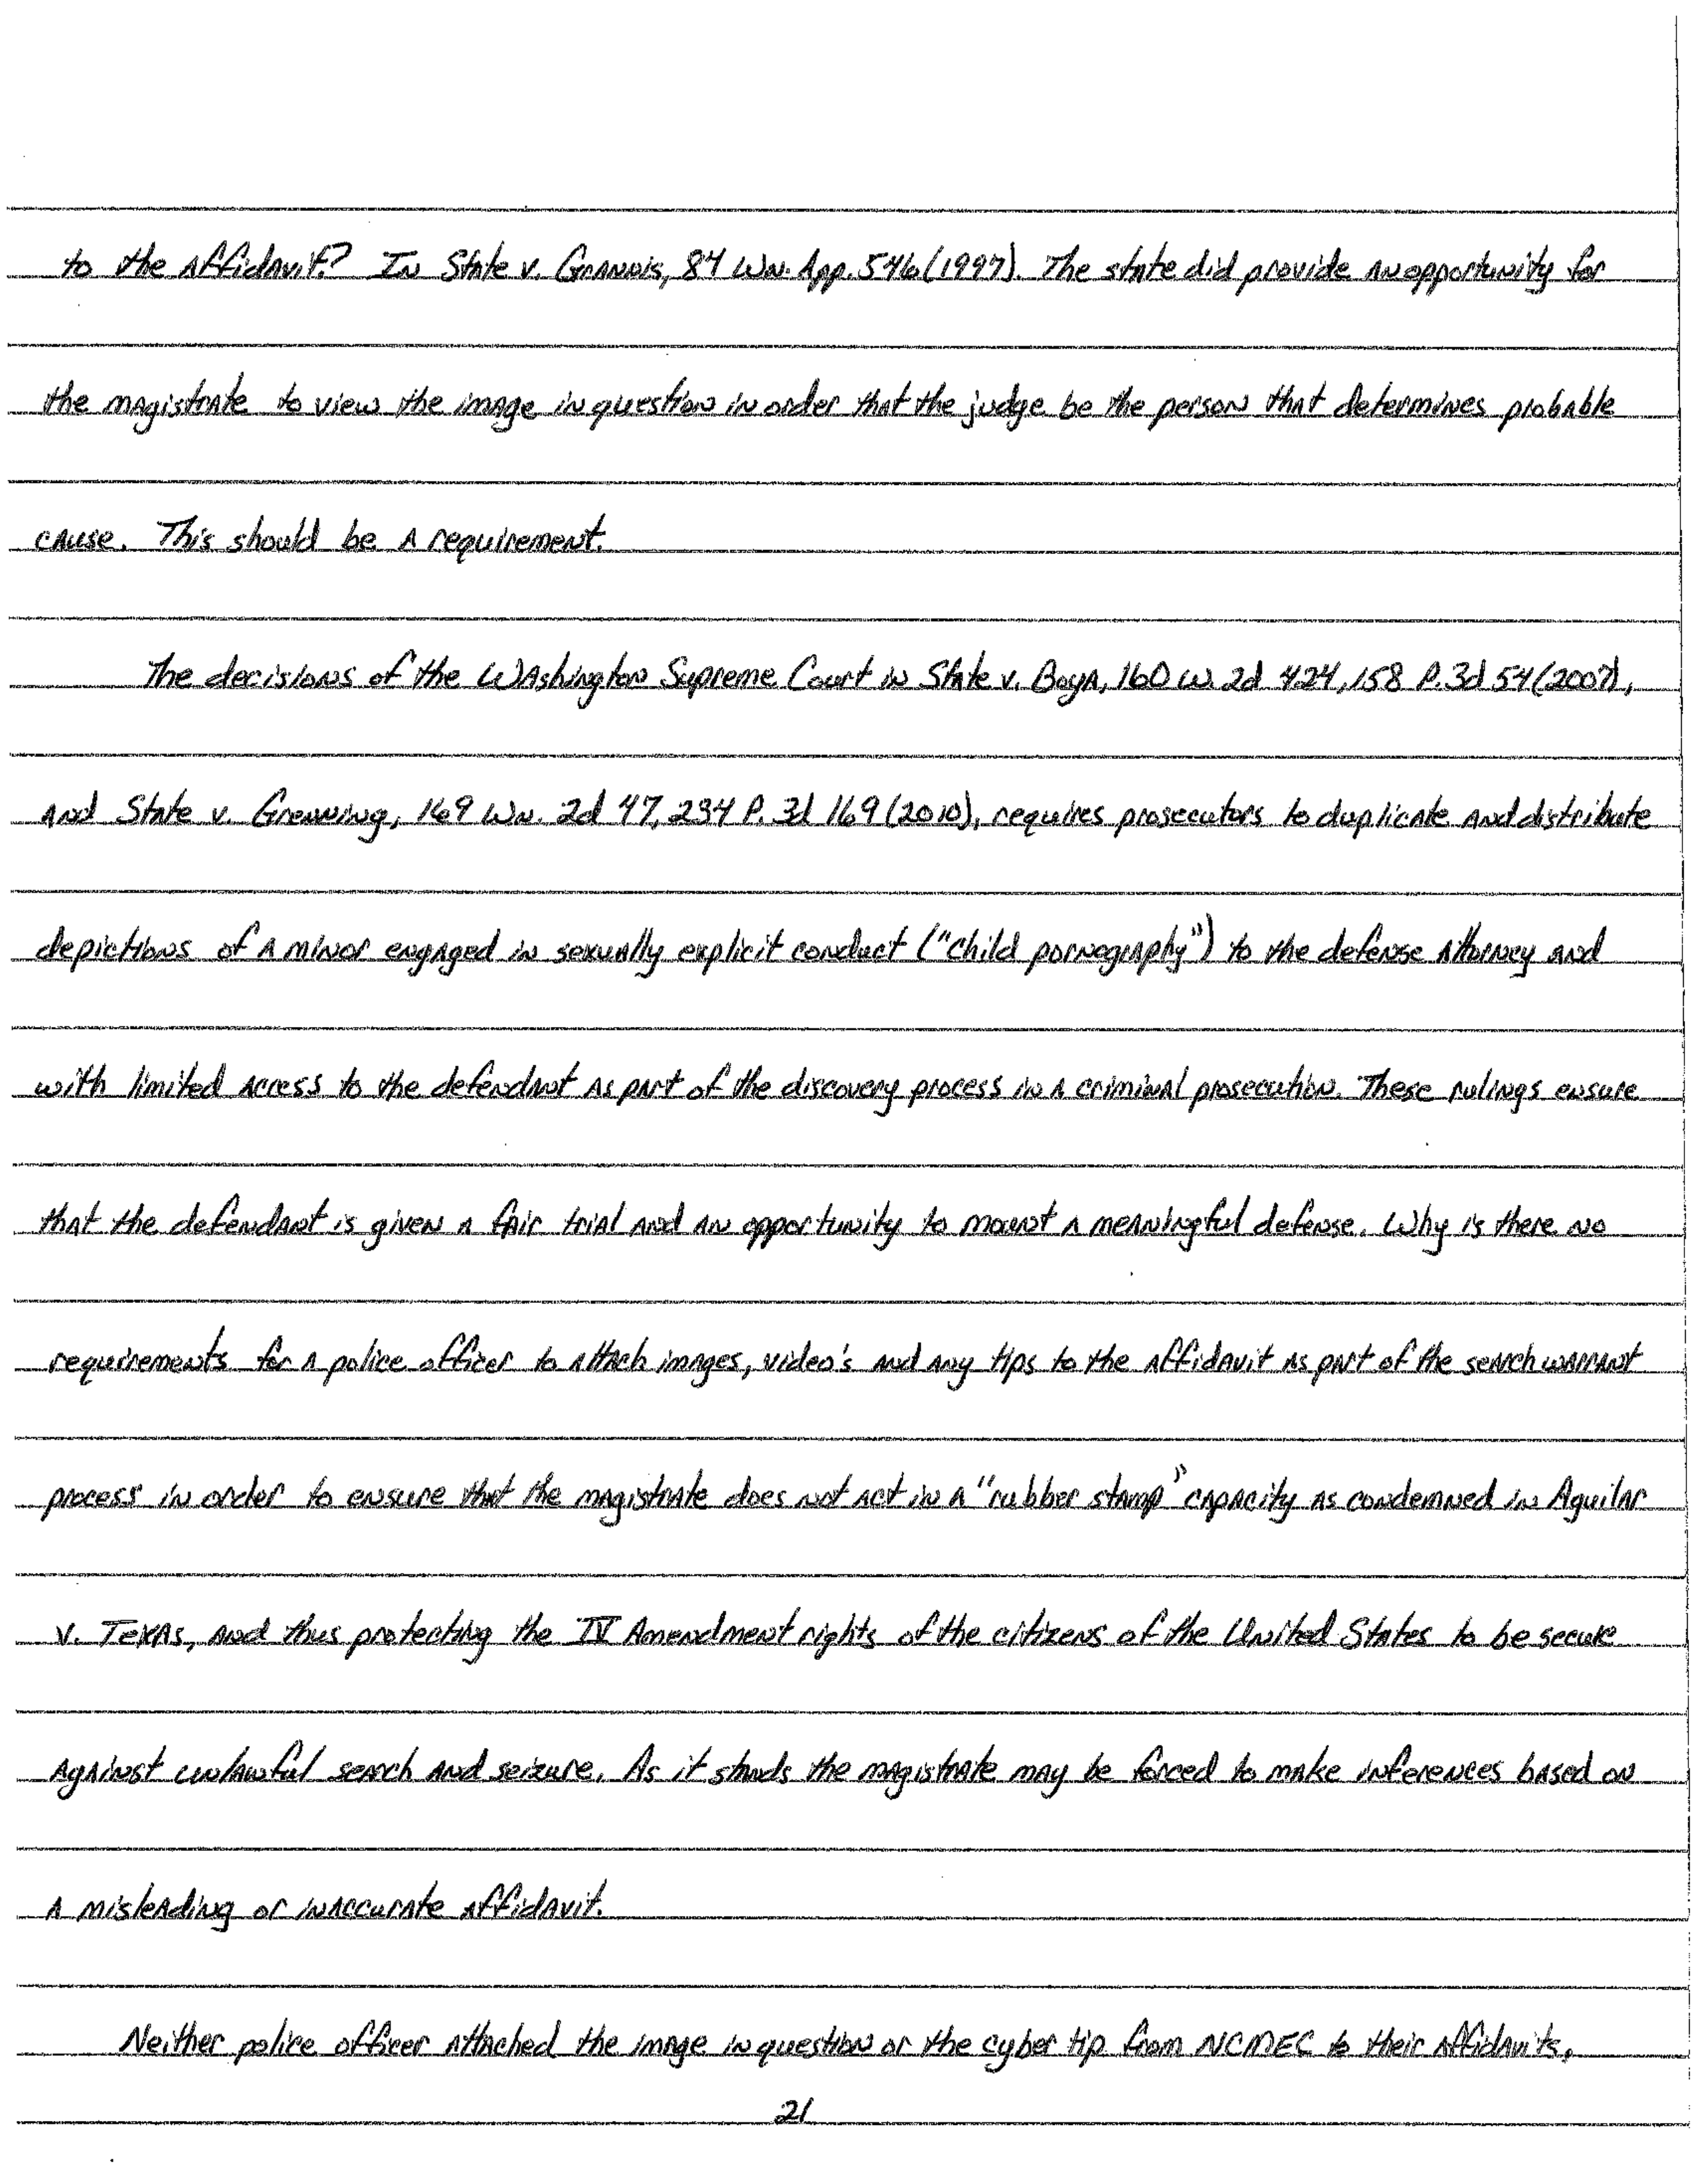 to the affidavit? In State v. Grannis, 84 Wn. App. 546 (1997). The state did provide an opportunity for
the magistrate to view the image in question in order that the judge be the person that determines probable
cause. This should be a requirement.
The decisions of the Washington Supreme Court in State v. Boyd, 160 W. 2d 424, 158 P. 3d 54 (2007),
and State v. Grenning, 169 Wn. 2d 47, 234 P. 3d 169 (2010), requires prosecutors to duplicate and distribute
depictions of a minor engaged in sexually explicit conduct ("child pornegraphy") to the defense attorney and
with limited access to the defendant as part of the discovery process in a criminal prosecution. These rulings ensure
that the defendant is given a fair trial and an opportunity to mount a meaningful defense. Why is there no
requirements for a police officer to attach images, video's and any tips to the affidavit as part of the search warrant
process in order to ensure that the magistrate does not act in a "rubber stamp" capacity as condemned in Aguilar
v. Texas, and thus protecting the IV Amendment rights of the citizens of the United States to be secure
against unlawful search and seizure. As it stands the magistrate may be forced to make inferences based on
a misleading or inaccurate affidavit.
Neither police officer attached the image in question or the cyber tip from NCMEC to their affidavits,
21